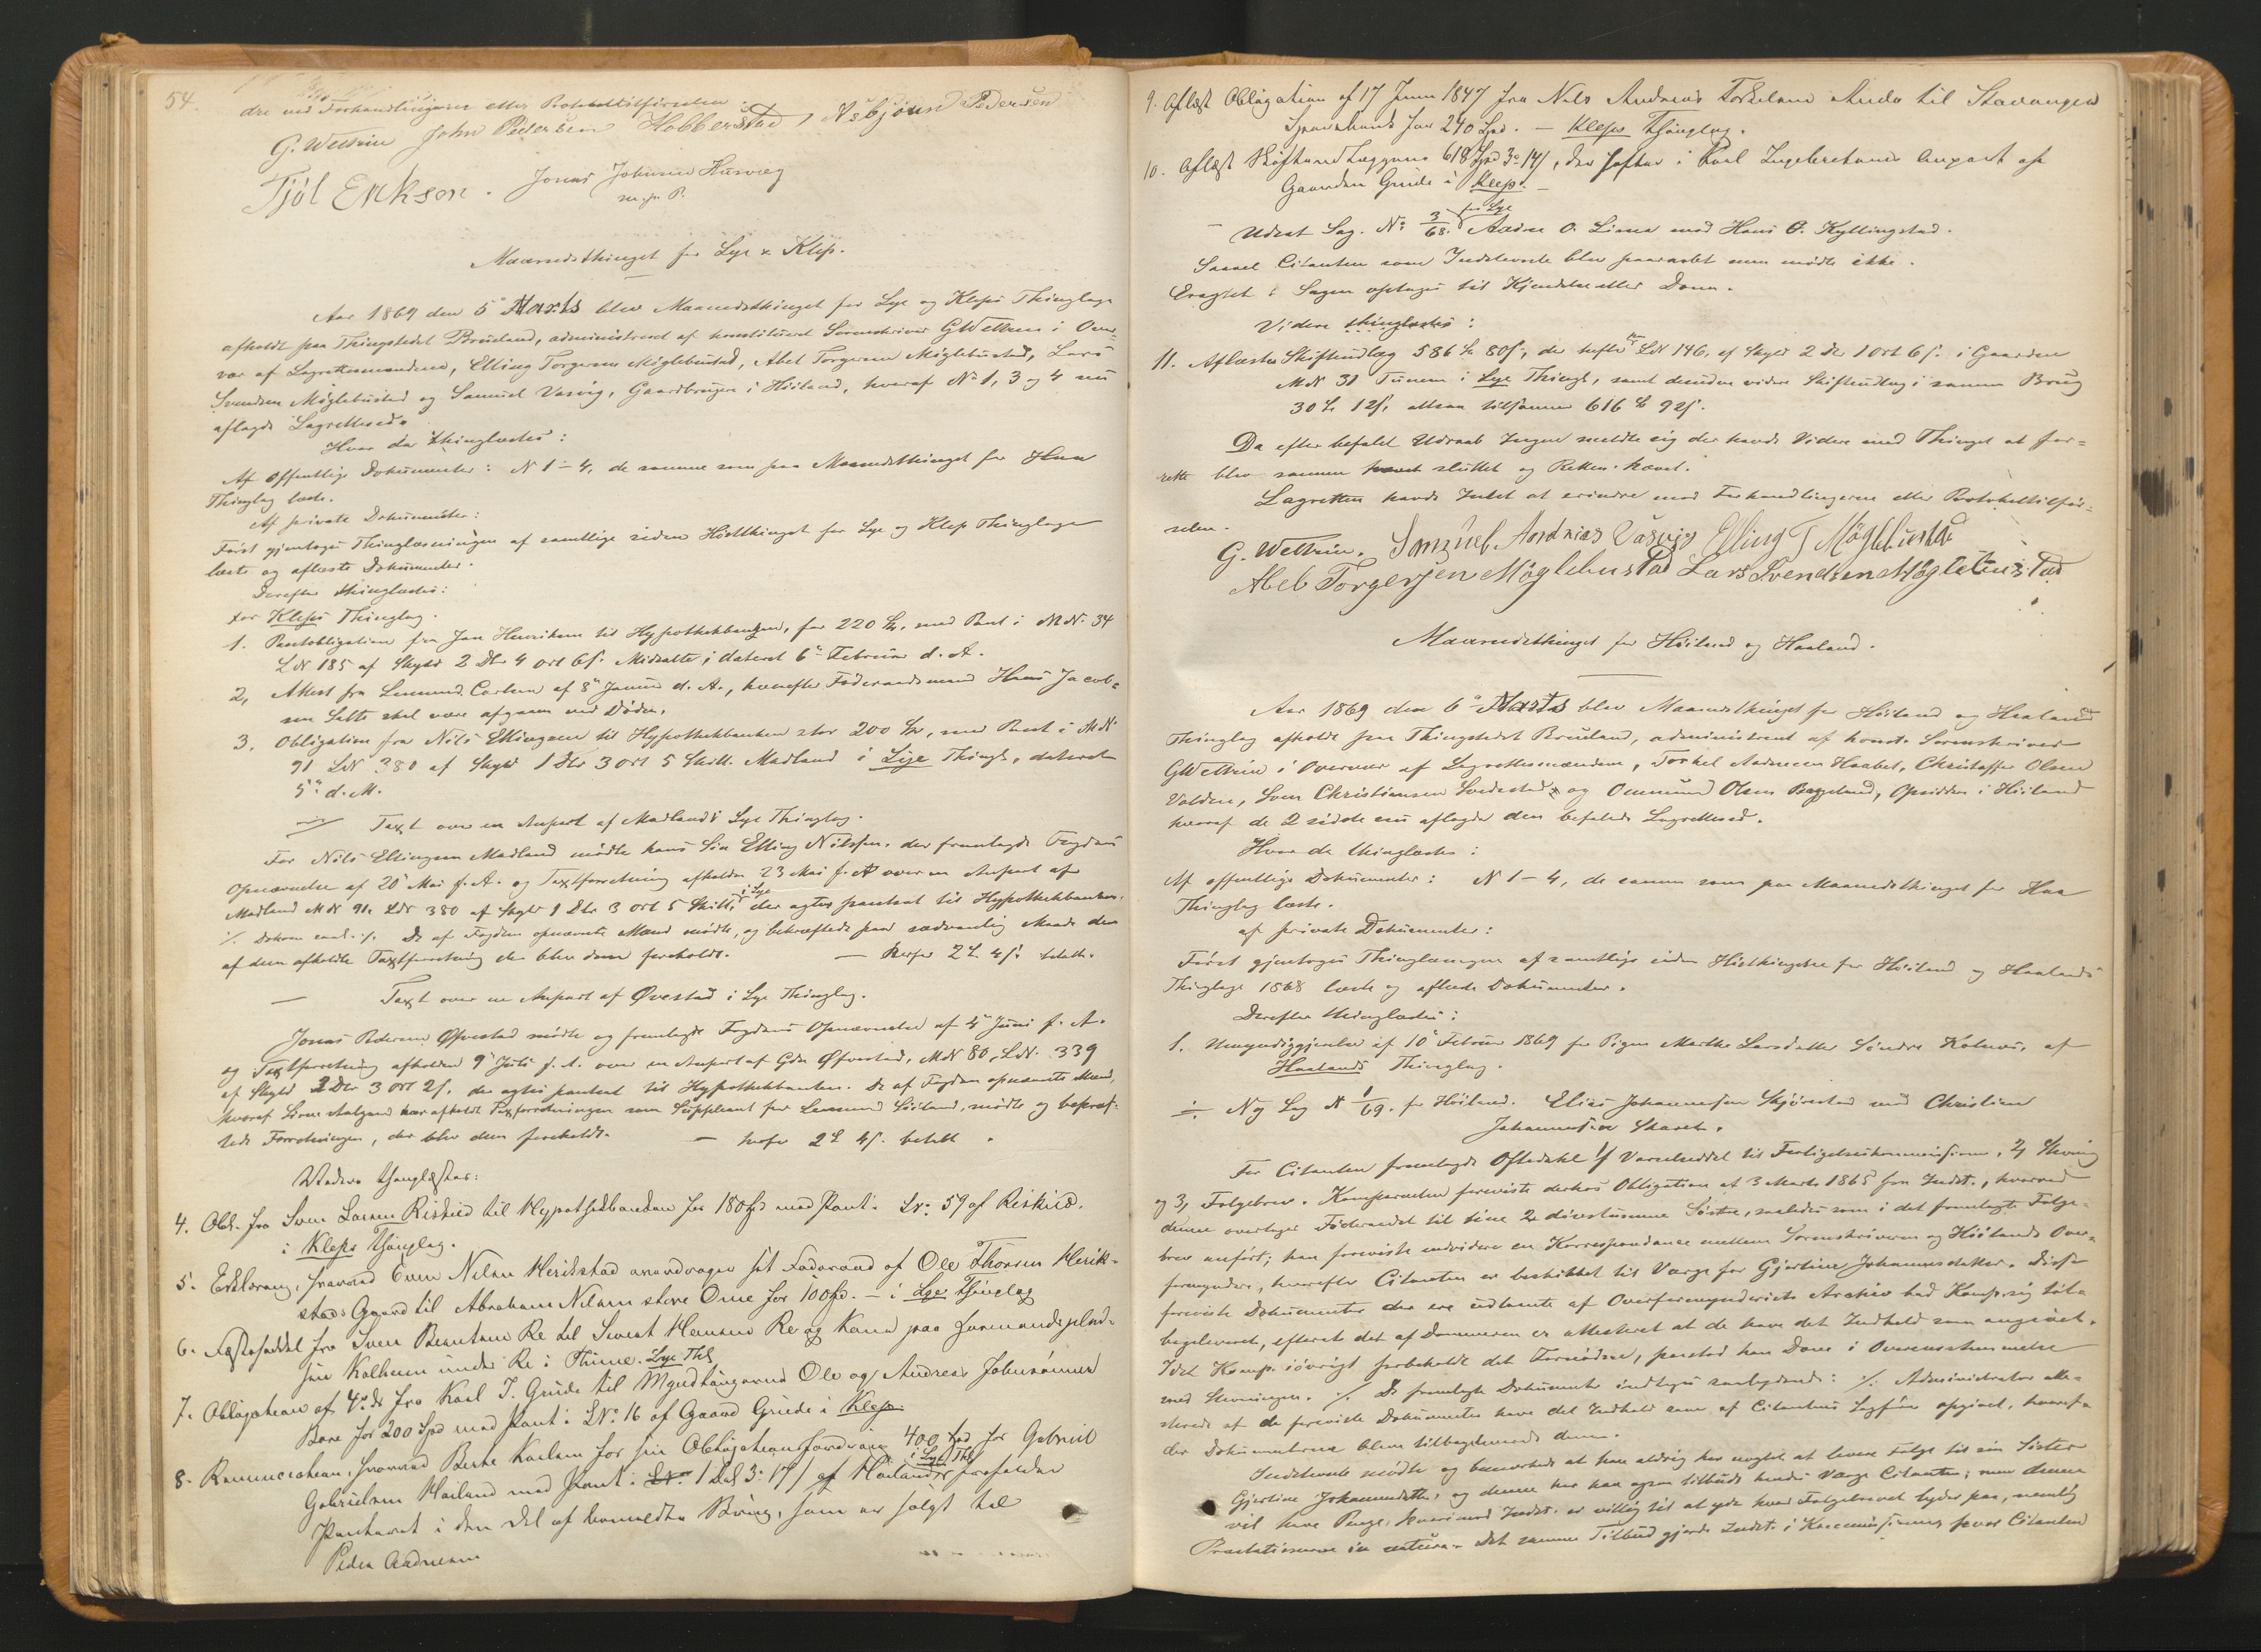 54.
dre ved Forhandlingerne eller Protokoltilførselen
G. Wettrein John Pedersen Hobberstad, Asbjørn Pedersen
Tjøl Eriksen. Jonas Johnsen Husveg
m. f. P.
Maanedsthinget for Lye & Klep.
Aar 1869 den 5te Marts blev Maanedsthinget for Lye og Kleps Thinglage
afholdt paa Thingstedet Bruland, administreret af konstitueret Sorenskriver GWettrein i Over-
vær af Lagrettesmændene, Elling Torgersen Møglebustad, Abel Torgersen Møglebustad, Lars
Svendsen Møglebustad og Samuel Vasvig, Gaardbrugere i Høiland, hvoraf No 1, 3 og 4 nu
aflagde Lagrettesed.
Hvor da thinglæstes:
Af offentlige Dokumenter: N 1-4, de samme som paa Maanedsthinget for Haa
Thinglag læste.
Af private Dokumenter:
Først gjentoges Thinglæsningen af samtlige siden Høstthinget for Lye og Klep Thinglage
læste og aflæste Dokumenter.
Derefter thinglæstes:
for Kleps Thinglag.
1. Pantobligation fra Jan Henriksen til Hypothekbanken, for 220 Sp, med Pant i MN. 34
LN 185 af Skyld 2 Dlr 4 ort 6 s. Midsalte; dateret 6te Februar d. A.
2, Attest fra Lensmand Carlsen af 8de Januar d. A., hvorefter Føderaadsmand Hans Jacob-
sen Salte skal være afgaaen ved Døden.
3. Obligation fra Nils Ellingsen til Hypothekbanken stor 200 Sp, med Pant i MN
91 LN 380 af Skyld 1 Dlr 3 ort 5 Skill. Madland i Lye Thingl, dateret
5te d. M.
Taxt over en Anpart af Madland i Lye Thinglag.
For Nils Ellingsen Madland mødte hans Søn Elling Nilssen, der fremlagde Fogdens
Opnævnelse af 20de Mai f. A. og Taxtforretning afholden 23 Mai f. A over en Anpart af
Madland MN 91, LN 380 af Skyld 1 Dlr 3 ort 5 Skill. i Lye der agtes pantsat til Hypothekbanken.
De af Fogden opnævnte Mænd mødte, og bekræftede paa sædvanlig Maade den
af dem afholdte Taxtforretning der blev dem foreholdt. — 2 4 s. betalt.
— Taxt over en Anpart af Øvestad i Lye Thinglag.
Jonas Pedersen Øfvestad mødte og fremlagde Fogdens Opnævnelse af 4de Juni f. A.
og Taxtforretning afholden 9de Juli f. A. over en Anpart af Gdn Øfvestad, MN 80, LN. 339
af Skyld 2 Dlr 3 ort 2 s. der agtes pantsat til Hypothekbanken. De af Fogden opnævnte Mænd,
hvoraf Aalgaard har afholdt Taxtforretningen som Suppleant for Lensmand Høiland, mødte og bekræf-
tede Forretningen, der blev dem foreholdt. — 2 4 s. betalt.
Videre thinglæstes:
4. Obl. fra Sven Larsen Riskied til Hypothekbanken for 180 Spd med Pant i Lr. 59 af Riskied.
i Kleps Thinglag.
5. Erklæring, hvorved Even Nilsen Herikstad overdrager sit Føderaad af Ole Thorsen Herik-
stads Gaard til Abraham Nilsen store Ome for 100 Spd. — i Lye Thinglag
6. Fæsteseddel fra Sven Berntsen Re til Sivert Hansen Re og Kone paa Huusmandsplad-
sen Kalheim under Re i Thime. Lye Thl
7. Obligation af 4de ds fra Karl I. Grude til Myndlingerne Ole og Andreas Johnsønner
Bore for 200 Spd med Pant i LNo. 16 af Gaard Grude i Klep.
8. Renunciation, hvorved Berte Karlsen for sin Obligationsfordring 400 Spd for Gabriel
Gabrielsen Høiland med Pant i LNo 1 Dal 3. 17 s af Høiland i Lye Thl frafalder
Panteret i den Del af bemeldte Brug, som er solgt til
Peder Aadnesen
9. Aflæst Obligation af 17 Juni 1847 fra Nils Andreas Torkelsen Anda til Stavanger
Sparebank for 240 Spd. — Kleps Thinglag.
10. Aflæst Skifteudlæggene 618 Spd 3. 14 s, der hefter i Karl Ingebretsens Anpart af
Gaarden Grude i Klep. —
— Udsat Sag. No 3/68. for Lye Aadne O. Lima mod Hans O. Kyllingstad.
Saavel Citanten som Indstevnte blev paaraabt men mødte ikke.
Eragtet: Sagen optages til Kjendelse eller Dom.
Videre thinglæstes:
11. Aflæstes Skifteudlæg 586 Sp 80 s, der hefter paa LN 146, af Skyld 2 Dlr 1 Ort 6 s. i Gaarden
MN 31 Tunem i Lye Thingl, samt desuden videre Skifteudlæg i samme Brug
30 Sp 12 s, altsaa tilsammen 616 Sp 92 s.
Da efter befalet Udraab Ingen meldte sig der havde Videre ved Thinget at for-
rette blev samme sluttet og Retten hævet.
Lagretten havde Intet at erindre mod Forhandlingerne eller Protokoltilfør-
selen.
G. Wettrein. Samuel Andreas Vasvig Elling T Møglebustad
Abel Torgersen Møglebustad Lars Svendsen Møglebustad
Maanedsthinget for Høiland og Haaland.
Aar 1869 den 6te Marts blev Maanedsthinget for Høiland og Haaland
Thinglag afholdt paa Thingstedet Bruland, administreret af konst. Sorenskriver
GWettrein i Overvær af Lagrettesmændene, Torkel Aadnesen Haabet, Christoffer Olsen
Valden, Sven Christiansen Svedestad og Ommund Olsen Bøggeland, Opsiddere i Høiland
hvoraf de 2 sidste nu aflagde den befalede Lagrettesed.
Hvor da thinglæstes:
Af offentlige Dokumenter: N 1-4, de samme som paa Maanedsthinget for Haa
Thinglag læste.
af private Dokumenter:
Først gjentoges Thinglæsningen af samtlige siden Høstthingene for Høiland og Haalands
Thinglage 1868 læste og aflæste Dokumenter.
Derefter thinglæstes:
1. Umyndiggjørelse af 10de Februar 1869 for Pigen Marthe Larsdatter Søndre Kolnæs, af
Haalands Thinglag.
Ny Sag N 1/69. for Høiland. Elias Johannessen Skjørestad mod Christian
Johannessen Skaret.
For Citanten fremlagde Oftedahl 1) Varselseddel til Forligelseskommissionen, 2) Stevning
og 3, Følgebrev. Komparenten foreviste derhos Obligation af 3 Marts 1865 fra Indst., hvorved
denne overtager Føderaadet til sine 2de døvstumme Søstre, saaledes som i det fremlagte Følge-
brev anført; han foreviste endvidere en Korrespondance mellem Sorenskriveren og Høilands Over-
formyndere, hvorefter Citanten er beskikket til Værge for Gjertine Johannesdatter. Disse
foreviste Dokumenter der ere udlaante af Overformynderiets Archiv bad Komp. sig til-
bageleveret, efterat det af Dommeren er attesteret at de have det Indhold som angivet.
Idet Komp. iøvrigt forbeholdt det Fornødne, paastod han Dom i Overensstemmelse
med Stevningen. De fremlagte Dokumenter indtages saalydende: Administrator atte-
sterede at de foreviste Dokumenter have det Indhold som af Citantens Sagfører opgivet, hvoref-
der Dokumenterne bleve tilbageleverede denne.
Indstevnte mødte og bemærkede at han aldrig har nægtet at levere Følge til sin Søster
Gjertine Johannesdatter, og denne har han ogsaa tilbudt hendes Værge Citanten; men denne
vil have Penge, hvorimod Indst. er villig til at yde hvad Følgebrevet lyder paa, nemlig
Præstationerne in natura. Det samme Tilbud gjorde Indst. i Kommissionen hvor Citanten